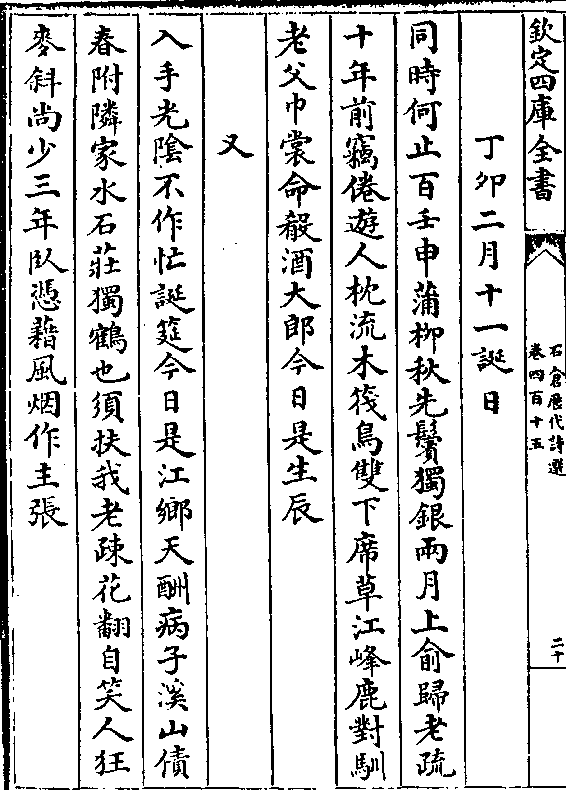 欽定四庫全書
石倉歷代詩選
卷四百十五
二十
丁卯二月十一誕日
同時何止百壬申蒲柳秋先鬢獨銀兩月上俞歸老疏
十年前竊倦遊人枕流木筏鳥雙下席草江峰鹿對馴
老父巾裳命殽酒大郎今日是生辰
又
入手光陰不作忙誕筵今日是江鄉天酬病子溪山債
春附隣家水石莊獨鶴也須扶我老疎花翻自笑人狂
麥斜尚少三年臥憑藉風烟作主張